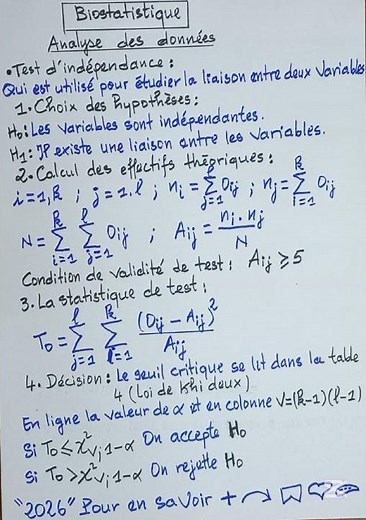 Biostatistique
Analyse des données
• Test d'indépendance :
Qui est utilisé pour étudier la liaison entre deux variables
1. Choix des hypothèses :
H₀: Les variables sont indépendantes.
H₁: Il existe une liaison entre les variables.
2. Calcul des effectifs théoriques :
i = 1,k ; j = 1,l ; nᵢ = Σ_{j=1}^{l} Oᵢⱼ ; nⱼ = Σ_{i=1}^{k} Oᵢⱼ
N = Σ_{i=1}^{k} Σ_{j=1}^{l} Oᵢⱼ ; Aᵢⱼ = nᵢ.nⱼ / N
Condition de validité de test : Aᵢⱼ ≥ 5
3. La statistique de test :
T₀ = Σ_{j=1}^{l} Σ_{i=1}^{k} (Oᵢⱼ - Aᵢⱼ)² / Aᵢⱼ
4. Décision : Le seuil critique se lit dans la table
4 (Loi de khi deux)
En ligne la valeur de α et en colonne V=(k-1)(l-1)
Si T₀ ≤ χ²ᵥ; 1-α On accepte H₀
Si T₀ > χ²ᵥ; 1-α On rejette H₀
"2026" Pour en savoir +